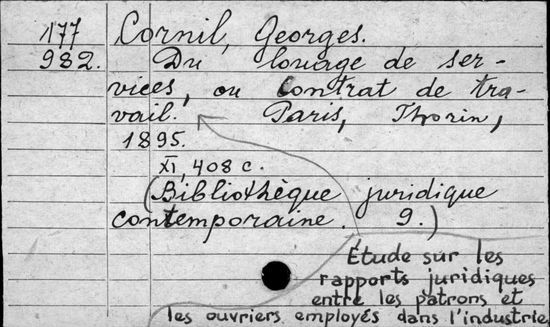 177 Cornil, Georges.
982. Du louage de ser-
vices, ou Contrat de tra-
vail. Paris, Thorin,
1895.
XI, 408 c.
(Bibliothèque juridique
contemporaine. 9.)
Étude sur les
rapports juridiques
entre les patrons et
les ouvriers employés dans l'industrie